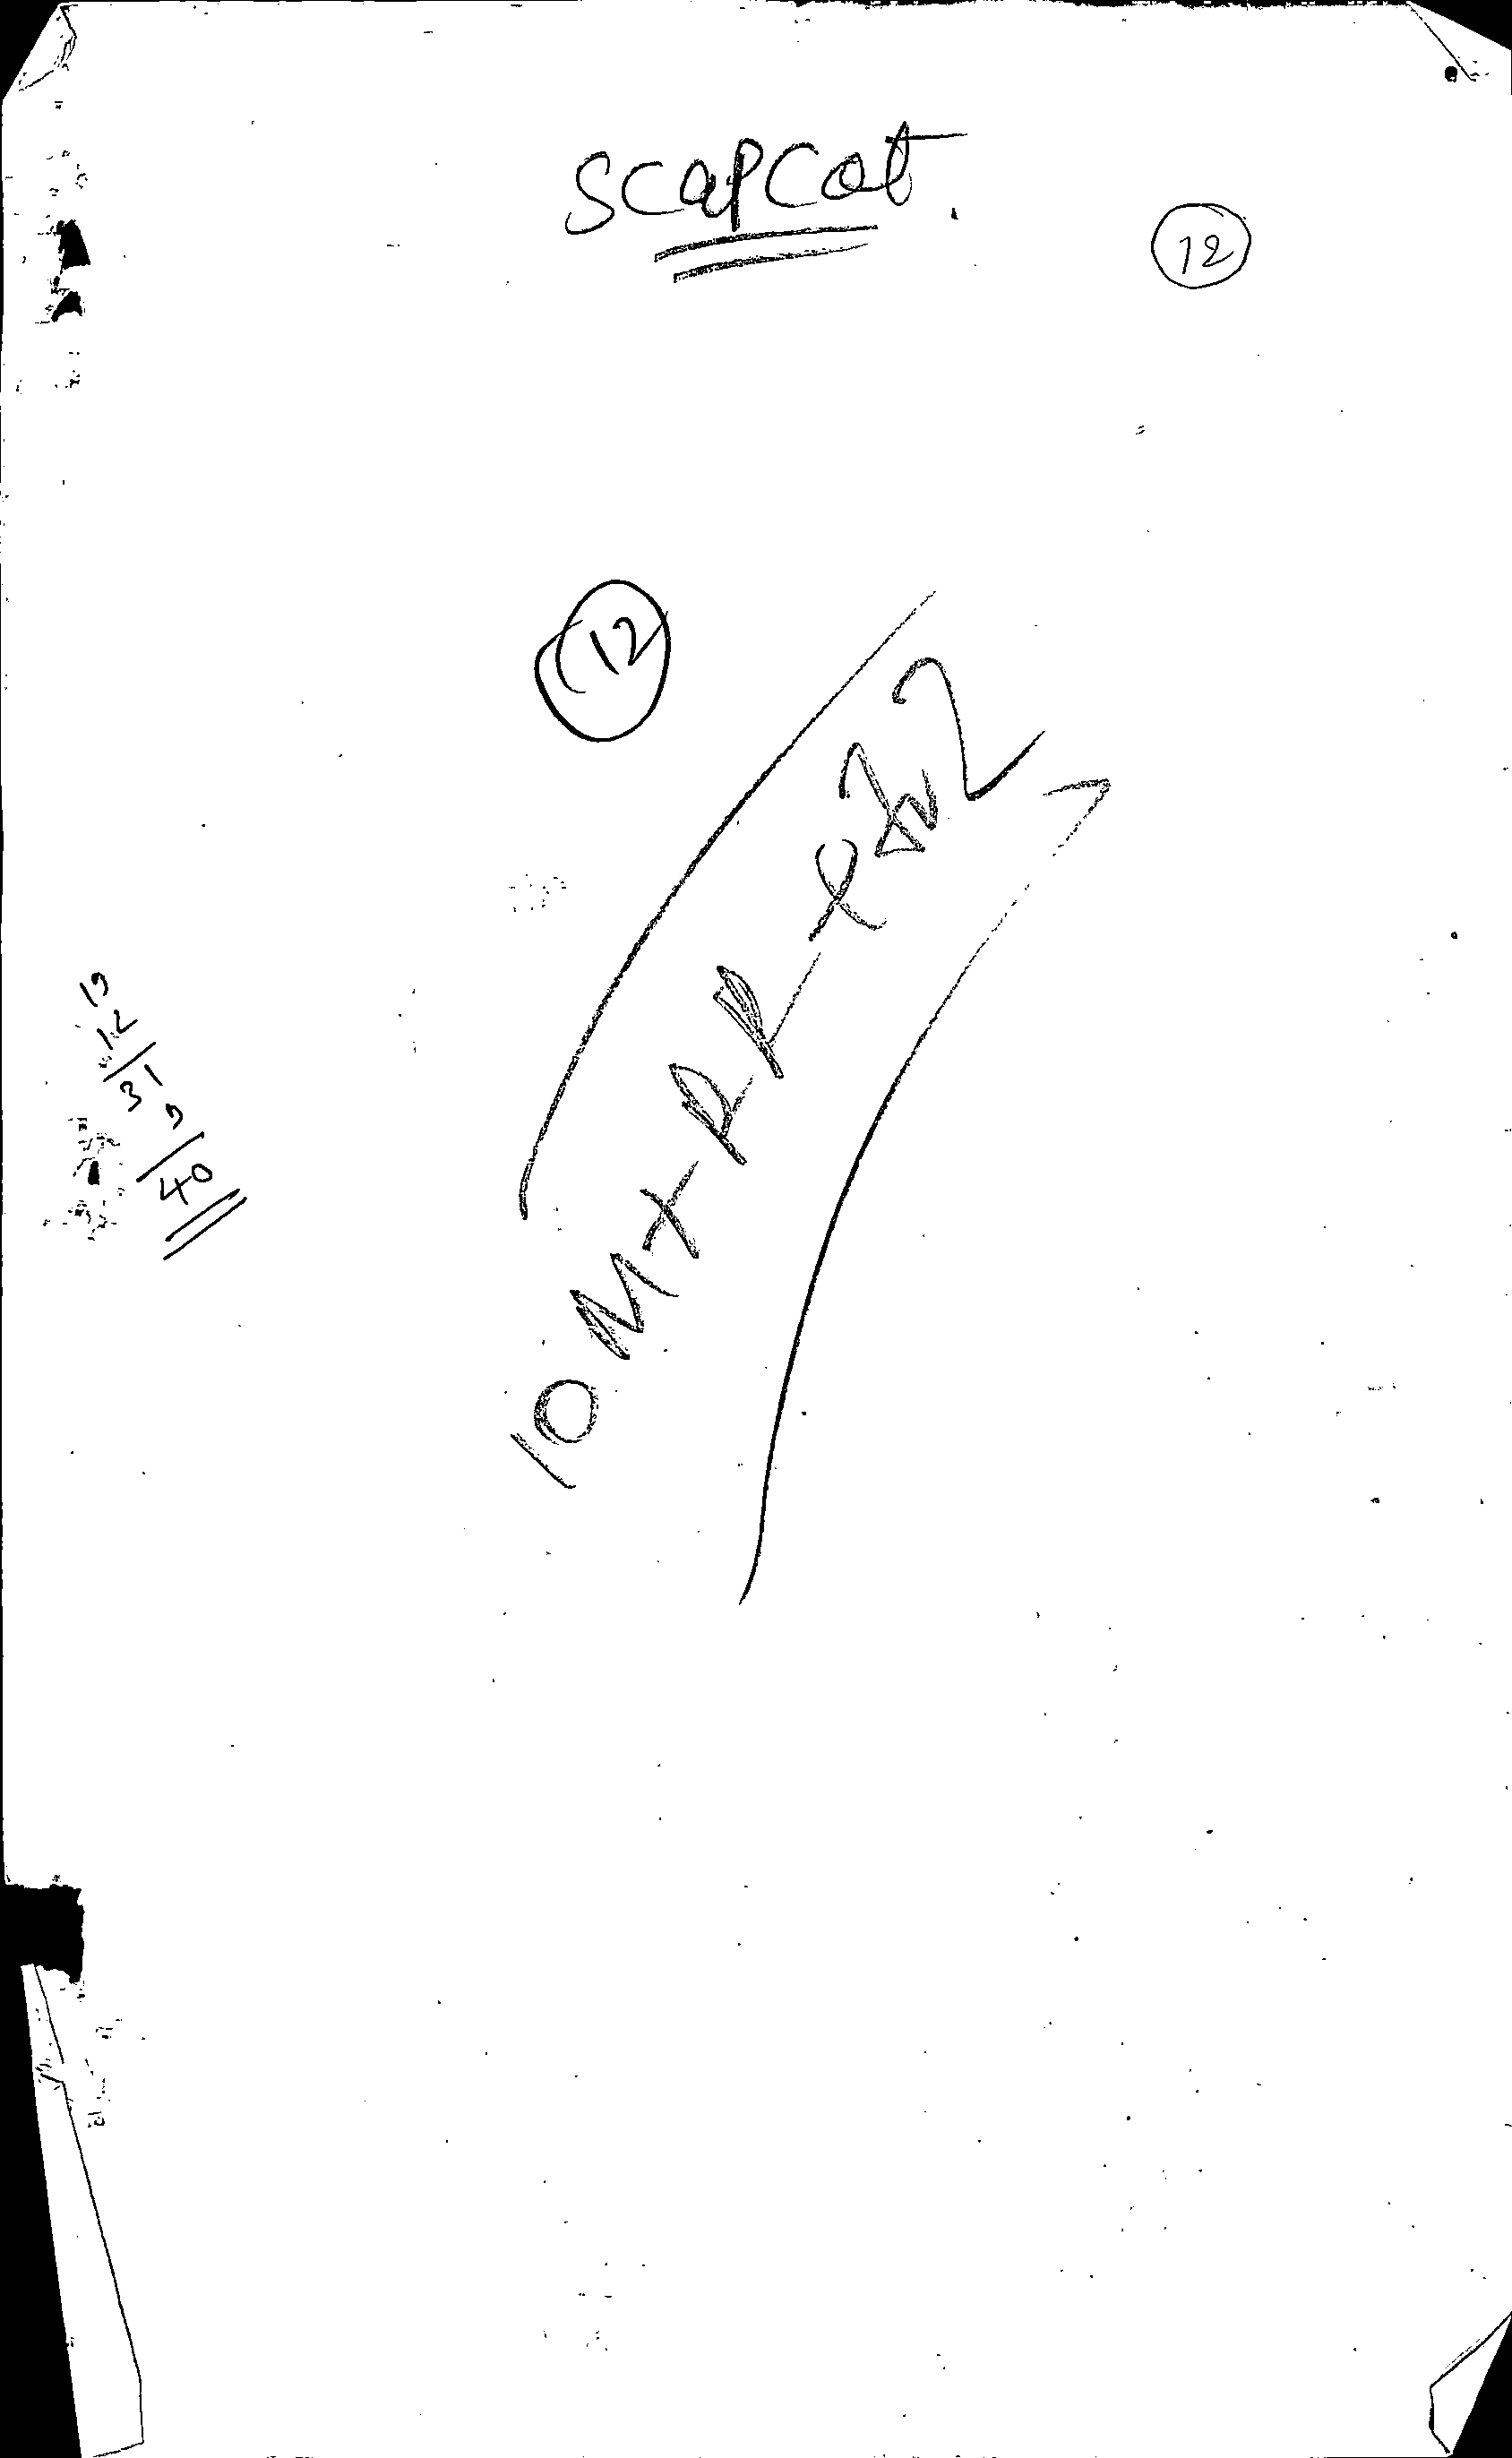 SCAPCOt.
12
12
10 M x RR
19
12
31
9
40